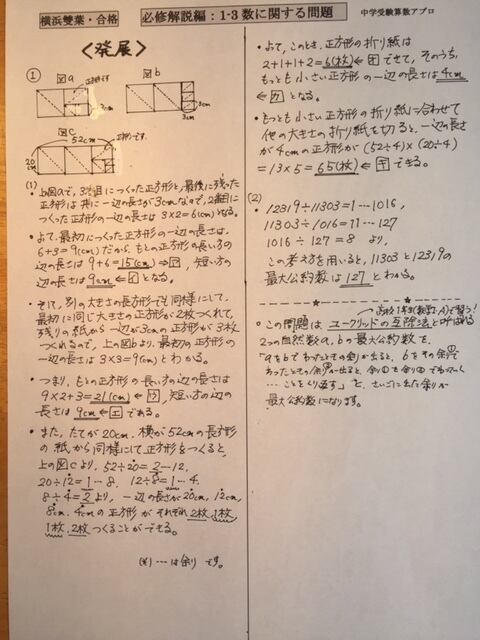 横浜雙葉・合格
必修解説編：1-3 数に関する問題
中学受験算数アプロ
＜発展＞
①
図a
正方形です
3cm
図b
3cm
3cm
図C
52cm
正方形です。
20cm
(1)・上図aで、3番目につくった正方形と、最後に残った
正方形は共に一辺の長さが3cmなので、2番目に
つくった正方形の一辺の長さは 3×2=6(cm)となる。
・よって、最初につくった正方形の一辺の長さは、
6+3=9(cm)だから、もとの長方形の長い方の
辺の長さは 9+6=15(cm)⇒ア、短い方の
辺の長さは 9cm ⇐イ となる。
・そして、別の大きさの長方形でも同様にして、
最初に同じ大きさの正方形が2枚つくれて、
残りの紙から一辺が3cmの正方形が3枚
つくれるので、上の図bより、最初の正方形の
一辺の長さは 3×3=9(cm)とわかる。
・つまり、もとの長方形の長い方の辺の長さは
9×2+3=21(cm)⇐ウ、短い方の辺の長さは
9cm ⇐エ である。
・また、たてが20cm、横が52cmの長方形
の紙から同様にして正方形をつくると、
上の図Cより、52÷20=2…12、
20÷12=1…8、12÷8=1…4、
8÷4=2より、一辺の長さが20cm、12cm、
8cm、4cmの正方形がそれぞれ2枚、1枚、
1枚、2枚つくることができる。
(※) …は余りです。
・よって、このとき、正方形の折り紙は
2+1+1+2=6(枚)⇐オ できて、そのうち、
もっとも小さい正方形の一辺の長さは4cm
⇐カ となる。
・もっとも小さい正方形の折り紙に合わせて
他の大きさの折り紙を切ると、一辺の長さ
が4cmの正方形が (52÷4)×(20÷4)
=13×5=65(枚)⇐キ できる。
(2)
・12319÷11303=1…1016、
11303÷1016=11…127
1016÷127=8 より、
この考え方を用いると、11303と12319の
最大公約数は127とわかる。
高校1年生(数学A)で習う!
・この問題は ユークリッドの互除法と呼ばれる
2つの自然数a、bの最大公約数を、
「aをbでわったとき余りが出ると、bをその余り①で
わったとき余り②が出ると、余り①を余り②でわって、
…ことをくり返す」と、さいごに出た余りが
最大公約数になります。